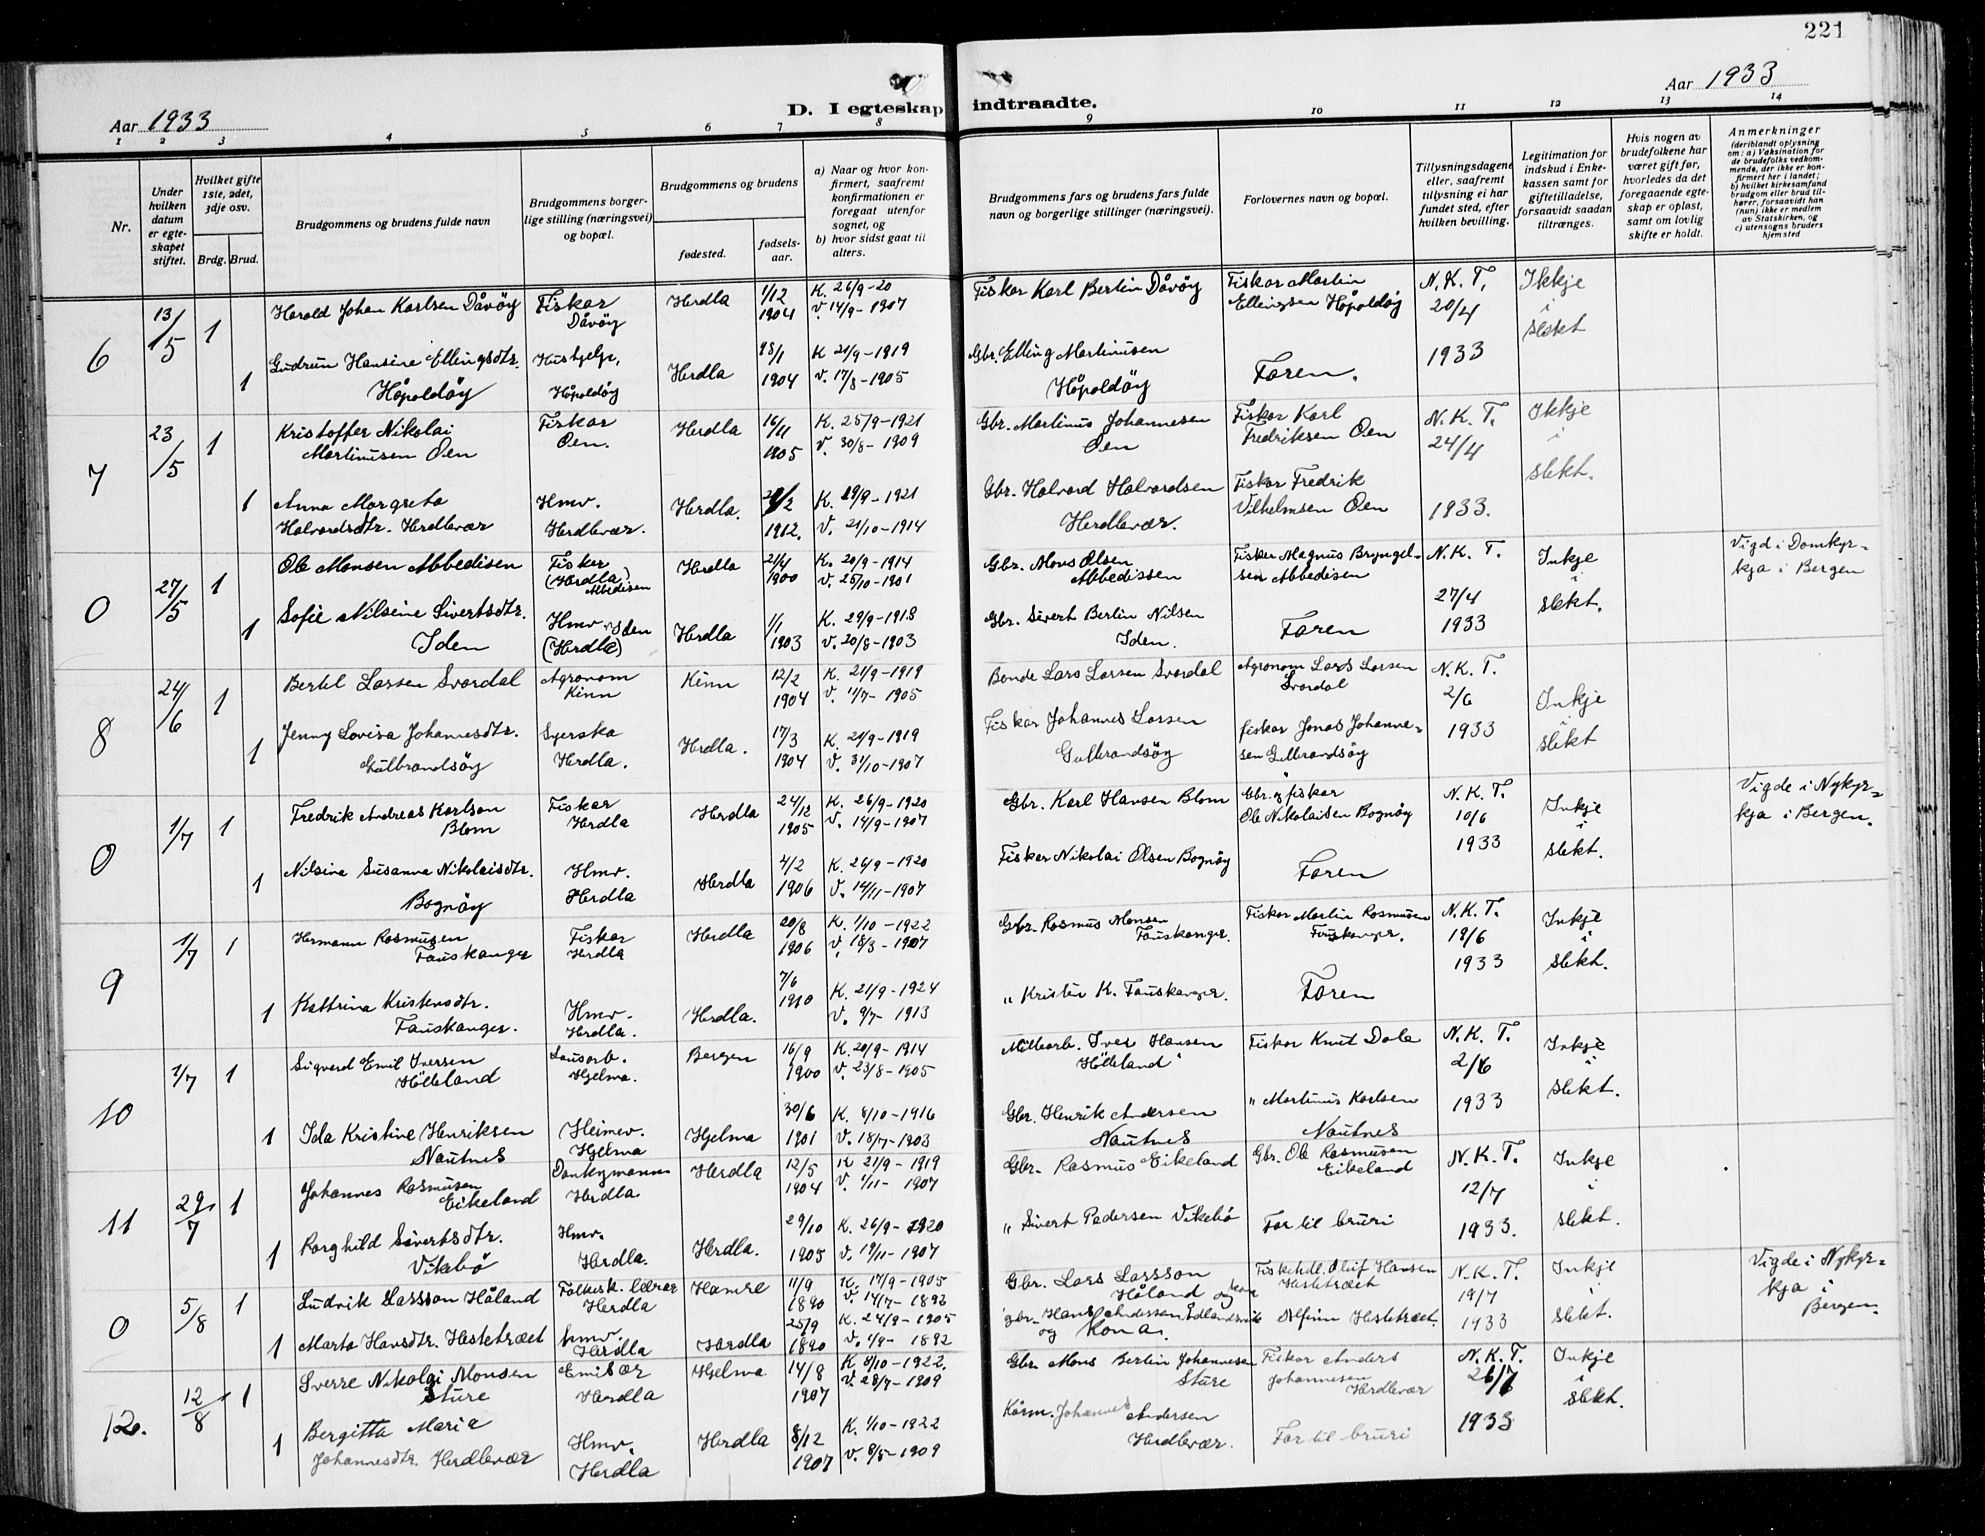 221
Aar 1933
D. I egteskap indtraadte.
Aar 1933
1 2 3 4 5 6 7 8 9 10 11 12 13 14
Nr.
Under hvilken datum er egteskapet stiftet.
Hvilket gifte 1ste, 2det, 3dje osv.
Brdg. Brud.
Brudgommens og brudens fulde navn
Brudgommens borgerlige stilling (næringsvei) og bopæl.
Brudgommens og brudens
fødested.
fødselsaar.
a) Naar og hvor konfirmert, saafremt konfirmationen er foregaat utenfor sognet, og
b) hvor sidst gaat til alters.
Brudgommens fars og brudens fars fulde navn og borgerlige stillinger (næringsvei).
Forlovernes navn og bopæl.
Tillysningsdagene eller, saafremt tillysning ei har fundet sted, efter hvilken bevilling.
Legitimation for indskud i Enkekassen samt for giftetilladelse, forsaavidt saadan tiltrænges.
Hvis nogen av brudefolkene har været gift før, hvorledes da det foregaaende egteskap er opløst, samt om lovlig skifte er holdt.
Anmerkninger
(deriblandt oplysning om: a) Vaksination for de brudefolks vedkommende, der ikke er konfirmert her i landet; b) hvilket kirkesamfund brudgom eller brud tilhører, forsaavidt han (hun) ikke er medlem av Statskirken, og c) utensogns bruders hjemsted
6 13/5 1 Harald Johan Karlsen Dåvöy Fiskar Dåvöy Herdla 1/12 1904 K. 26/9-20 V. 14/9-1907 Fiskar Karl Bertin Dåvöy Fiskar Martin Ellingsen Håpoldöy N.K.T. 20/4 1933 Ikkje i slekt
1 Gudrun Hansine Ellingsdtr. Håpoldöy Hushjelp, Håpoldöy Herdla 1904 K 21/9-1919 V. 17/8-1905 Gbr. Elling Martinusen Håpoldöy Faren.
7 23/5 1 Kristoffer Nikolai Martinusen Öen Fiskar Öen. Herdla 16/11 1905 K. 25/9-1921 V. 30/8-1909 Gbr. Martinus Johannesen Öen Fiskar Karl Fredriksen Öen N.K.T. 24/4 1933. Ikkje i slekt.
1 Anna Margreta Halvordsdtr. Herdlevær Hmv. Herdlevær. Herdla. 1912. V. 21/10-1914 Gbr. Halvord Halvordsen Herdlevær. Fiskar Fredrik Vilhelmsen Öen
0 27/5 1 Ole Monsen Abbedisen Fisker (Herdla) Abbedisen Herdla 21/4 1900 K. 20/9-1914 V. 25/10-1901 Gbr. Mons Olsen Abbedissen Fisker Magnus Bryngelsen Abbedisen N.K.T. 27/4 1933 Inkje i slekt. Vigd i Domkyrkja i Bergen
1 Sofie Nilsine Sivertsdtr. Iden Hmv. Iden (Herdla) Herdla 1/1 1903 K. 29/9-1918 V. 20/8-1903 Gbr. Sivert Bertin Nilsen Iden. Faren
8 24/6 1 Bertel Larsen Svardal Agronom Kinn Kinn 12/2 1904 K. 21/9-1919 V. 11/7-1905 Bonde Lars Larsen Svardal Agronom Lars Larsen Svardal N.K.T. 2/6 1933 Inkje i slekt
1 Jenny Lovisa Johannesdtr. Gulbrandsöy Syerska Herdla. Herdla. 17/3 1904 K. 21/9-1919 V. 31/10-1907 Fiskar Johannes Larsen Gulbrandsöy fiskar Jonas Johannesen Gulbrandsöy
0 1/7 1 Fredrik Andreas Karlson Blom Fiskar Herdla Herdla 24/12 1905 K. 26/9-1920 V. 14/9-1907 Gbr. Karl Hansen Blom Gbr. og fiskar Ole Nikolaisen Bognöy N.K.T. 10/6 1933 Inkje i slekt. Vigde i Nykyrkja i Bergen.
1 Nilsina Susanna Nikolaisdtr. Bognöy Hmv. Herdla Herdla 4/2 1906 K. 26/9-1920 V. 14/11-1907 Fiskar Nikolai Olsen Bognöy Faren
9 1/7 1 Hermann Rasmusen Fauskanger Fiskar Herdla Herdla 20/8 1906 K. 1/10-1922 V. 18/3-1907 Gbr. Rasmus Monsen Fauskanger. Fiskar Martin Rasmusen Fauskanger. N.K.T. 19/6 1933 Inkje i slekt.
1 Kattrina Kristensdtr. Fauskanger. Hmv. Herdla. Herdla. 7/6 1910 K. 21/9-1924 V. 9/7-1913 " Kristen K. Fauskanger. Faren
10 1/7 1 Sigverd Emil Iversen Hölleland Lausarb. Hjelma. Bergen 16/9 1900 K. 20/9-1914 V. 23/8-1905 Iver Hansen Hölleland Fiskar Knut Dale N.K.T. 2/6 1933 Inkje i slekt.
1 Ida Kristine Henriksen Nautnes Heimev. Hjelma Hjelma 30/6 1901 K. 8/10-1916 V. 18/7-1903 Gbr. Henrik Andersen Nautnes " Martinus Karlsen Nautnes
11 29/7 1 Johannes Rasmusen Eikeland Donkymann Herdla Herdla 12/5 1904 K 21/9-1919 V. 1/11-1907 Gbr. Rasmus Eikeland Gbr. Ole Rasmusen Eikeland N.K.T. 12/7 1933. Inkje i slekt.
1 Borghild Sivertsdtr. Vikebö Hmv. Herdla. Herdla. 29/10 1905 K. 26/9-1920 V. 19/11-1907 " Sivert Pedersen Vikebö Far til bruri
0 5/8 1 Ludvik Larsson Håland Folkesk. lærar Herdla Hamre 11/9 1890 K. 17/9-1905 V. 14/7-1892 Gbr. Lars Larsson Håland og kona Fiskehdl. Oluf Hansen Hestetræet N.K.T. 19/7 1933 Inkje i slekt. Vigde i Nykyrkja i Bergen.
1 Marta Hansdtr. Hestetræet hmv. Herdla Herdla 25/9 1890 K. 24/9-1905 V. 2/9-1892 gbr. Hans Andersen og kona. Dolfinn Hestetræet.
12. 12/8 1 Sverre Nikolai Monsen Sture Emisær Herdla Hjelma 14/8 1907 K 8/10-1922. V. 28/7-1909 Gbr. Mons Bertin Johannesen Sture Fiskar Anders Johannesen Herdlevær N.K.T. 26/7 1933 Inkje i slekt.
1 Bergitta Maria Johannesdtr. Herdlevær Hmv. Herdla Herdla 8/12 1907 K. 1/10-1922 V. 8/5-1909 Johannes Andersen Herdlevær. Far til bruri